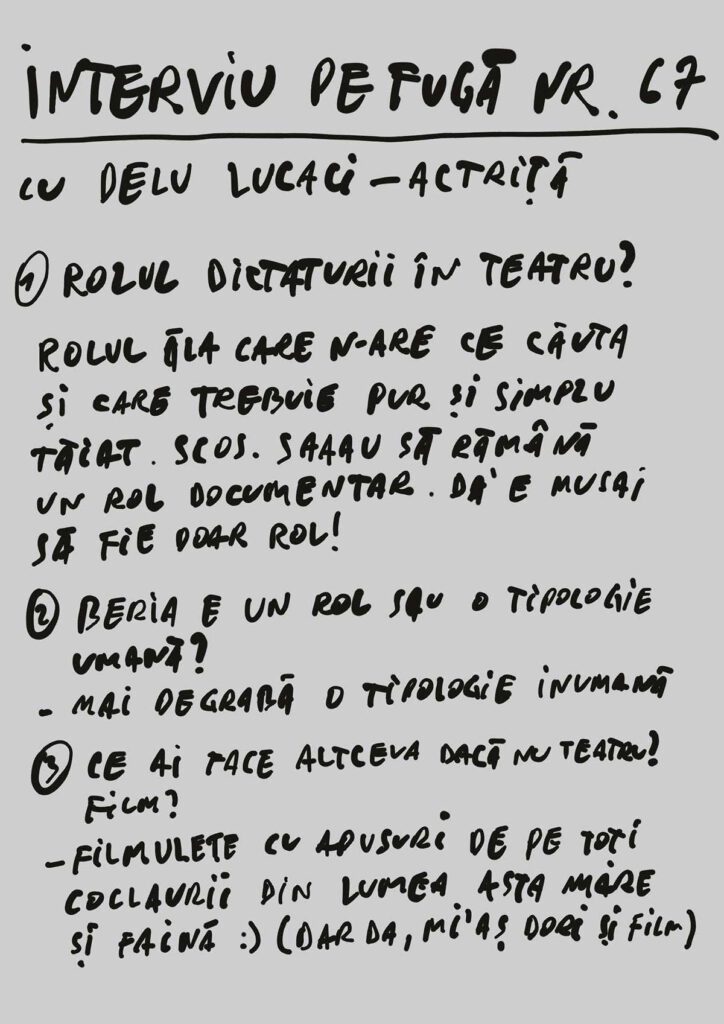 INTERVIU PE FUGĂ NR. 67
CU DELU LUCACI – ACTRIȚĂ
1 ROLUL DICTATURII ÎN TEATRU?
ROLUL ĂLA CARE N-ARE CE CĂUTA
ȘI CARE TREBUIE PUR ȘI SIMPLU
TĂIAT. SCOS. SAAAU SĂ RĂMÂNĂ
UN ROL DOCUMENTAR. DA' E MUSAI
SĂ FIE DOAR ROL!
2 BERIA E UN ROL SAU O TIPOLOGIE
UMANĂ?
- MAI DEGRABĂ O TIPOLOGIE INUMANĂ
3 CE AI FACE ALTCEVA DACĂ NU TEATRU?
FILM?
- FILMULETE CU APUSURI DE PE TOTI
COCLAURII DIN LUMEA ASTA MARE
ȘI FAINĂ :) (DAR DA, MI'AȘ DORI ȘI FILM)